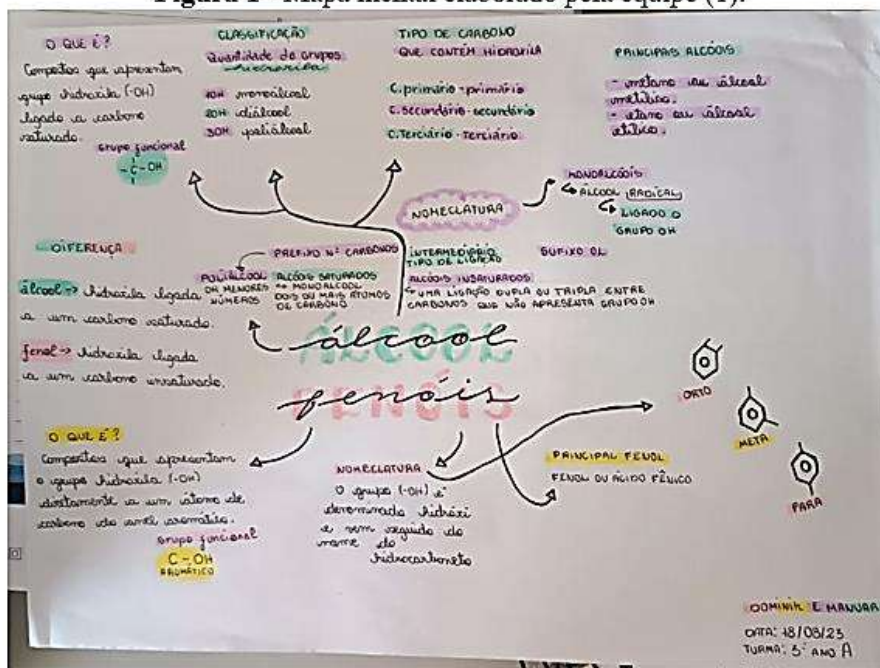 Figura 1 - Mapa mental elaborado pela equipe (1).
O QUE É?
Compostos que apresentam
grupo hidroxila (-OH)
ligado a carbono
saturado.
Grupo funcional
-C-OH
CLASSIFICAÇÃO
Quantidade de grupos
hidroxila
1OH monoálcool
2OH diálcool
3OH poliálcool
TIPO DE CARBONO
QUE CONTÉM HIDROXILA
C.primário-primário
C.Secundário-secundário
C.Terciário-Terciário
PRINCIPAIS ALCOÓIS:
- metano ou álcool
metílico.
- etano ou álcool
etílico.
NOMECLATURA
MONOALCOÓIS
ÁLCOOL (RADICAL)
LIGADO O
GRUPO OH
PREFIXO Nº CARBONOS
INTERMEDIÁRIO
TIPO DE LIGAÇÃO
SUFIXO OL
POLIÁLCOOL
OH MENORES
NÚMEROS
ALCOÓIS SATURADOS
MONOALCOOL
DOIS OU MAIS ÁTOMOS
DE CARBONO
ALCOÓIS INSATURADOS
UMA LIGAÇÃO DUPLA OU TRIPLA ENTRE
CARBONOS QUE NÃO APRESENTA GRUPO OH
DIFERENÇA
álcool → hidroxila ligada
a um carbono saturado.
fenol → hidroxila ligada
a um carbono insaturado.
ÁLCOOL
álcool
FENÓIS
fenóis
O QUE É?
Compostos que apresentam
o grupo hidroxila (-OH)
diretamente a um átomo de
carbono do anel aromático.
Grupo funcional
C-OH
AROMÁTICO
NOMECLATURA
O grupo (-OH) é
denominado hidróxi
e vem seguido do
nome do
hidrocarboneto
PRINCIPAL FENOL
FENOL OU ÁCIDO FÊNICO
ORTO
META
PARA
DATA: 18/08/23
TURMA: 3º ANO A